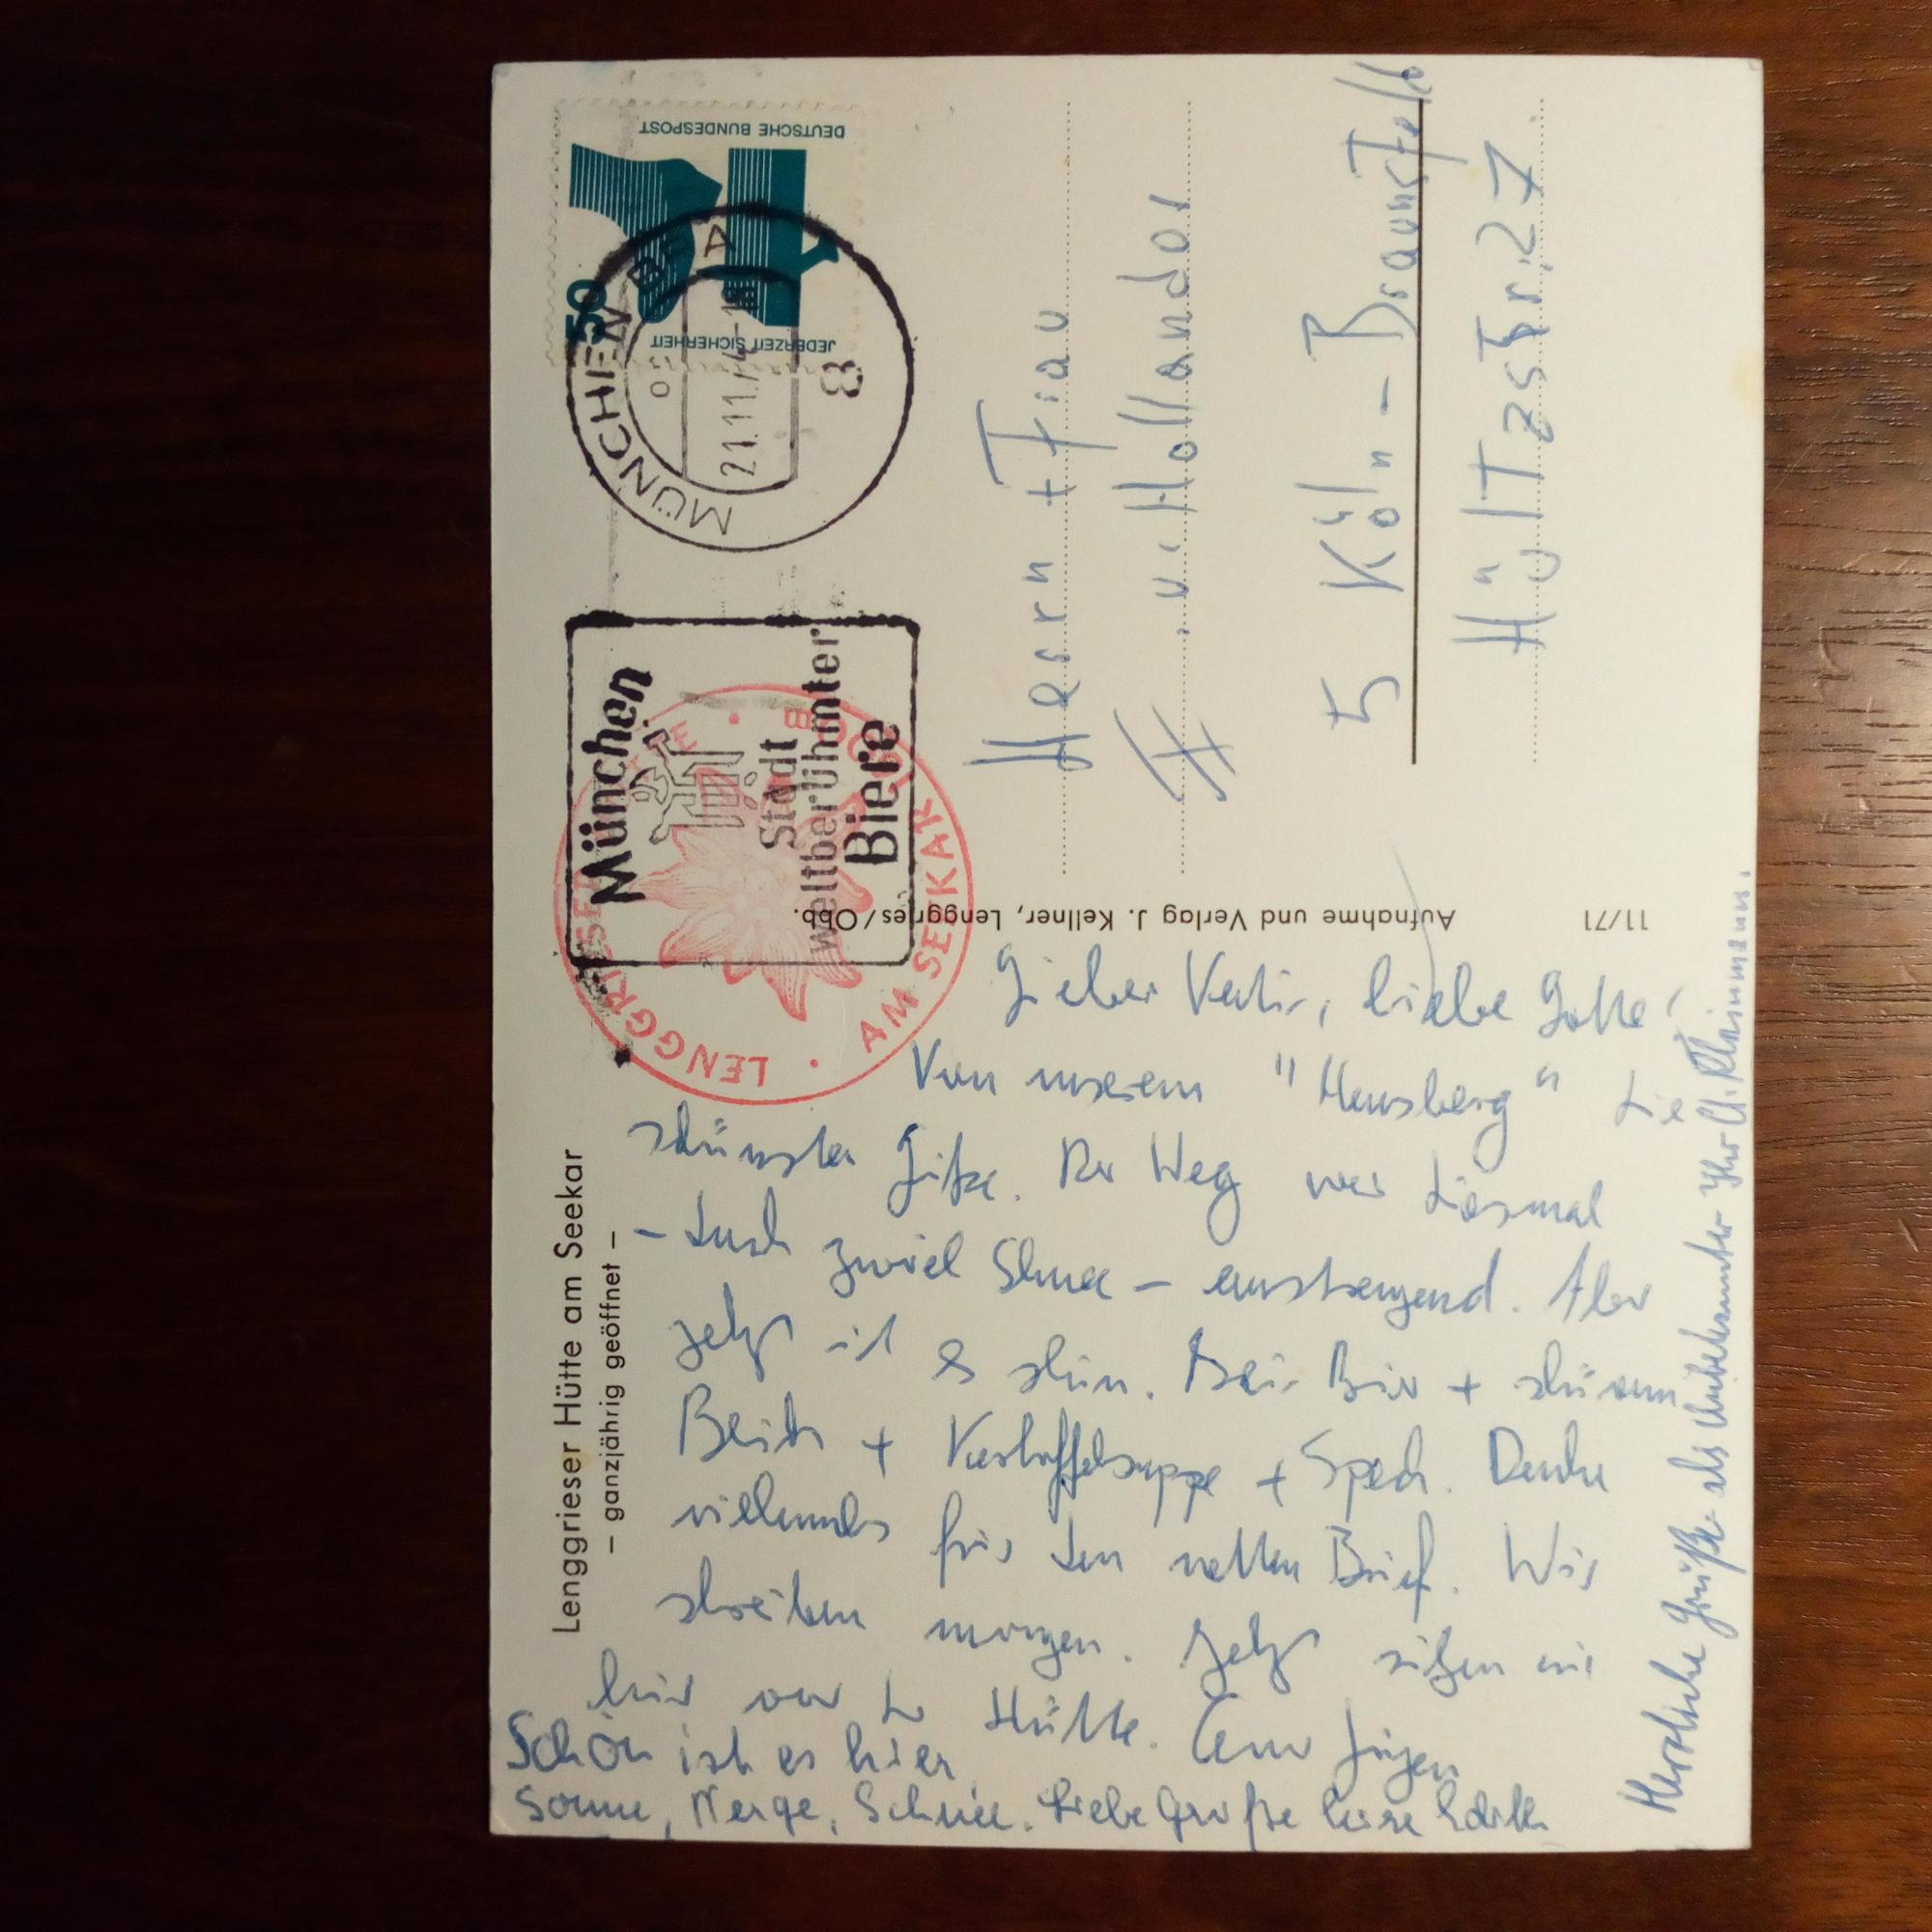 Lenggrieser Hütte am Seekar
– ganzjährig geöffnet –
LENGGRIESER HÜTTE •
AM SEEKAR
München
Stadt
weltberühmter
Biere
MÜNCHEN
21.11.74-18
8
DEUTSCHE BUNDESPOST
50
JEDERZEIT SICHERHEIT
Lieber Vati, liebe Lotte!
Von unserem "Hausberg" die
schönsten Grüße. Der Weg war diesmal
– durch zuviel Schnee – anstrengend. Aber
jetzt ist es schön. Bei Bier + schönem
Blick + Kartoffelsuppe + Speck. Danke
vielmals für den netten Brief. Wir
schreiben morgen. Jetzt sitzen wir
hier vor der Hütte. Euer Jürgen
Schön ist es hier
Sonne, Berge, Schnee. Liebe Grüße Eure Edith
Herzliche Grüße als Unbekannter Ihr U. Kleinmann.
Aufnahme und Verlag J. Kellner, Lenggries/Obb.
11/71
Herrn + Frau
H. u. Hollander
5 Köln - Braunsfeld
Hültzstr. 27